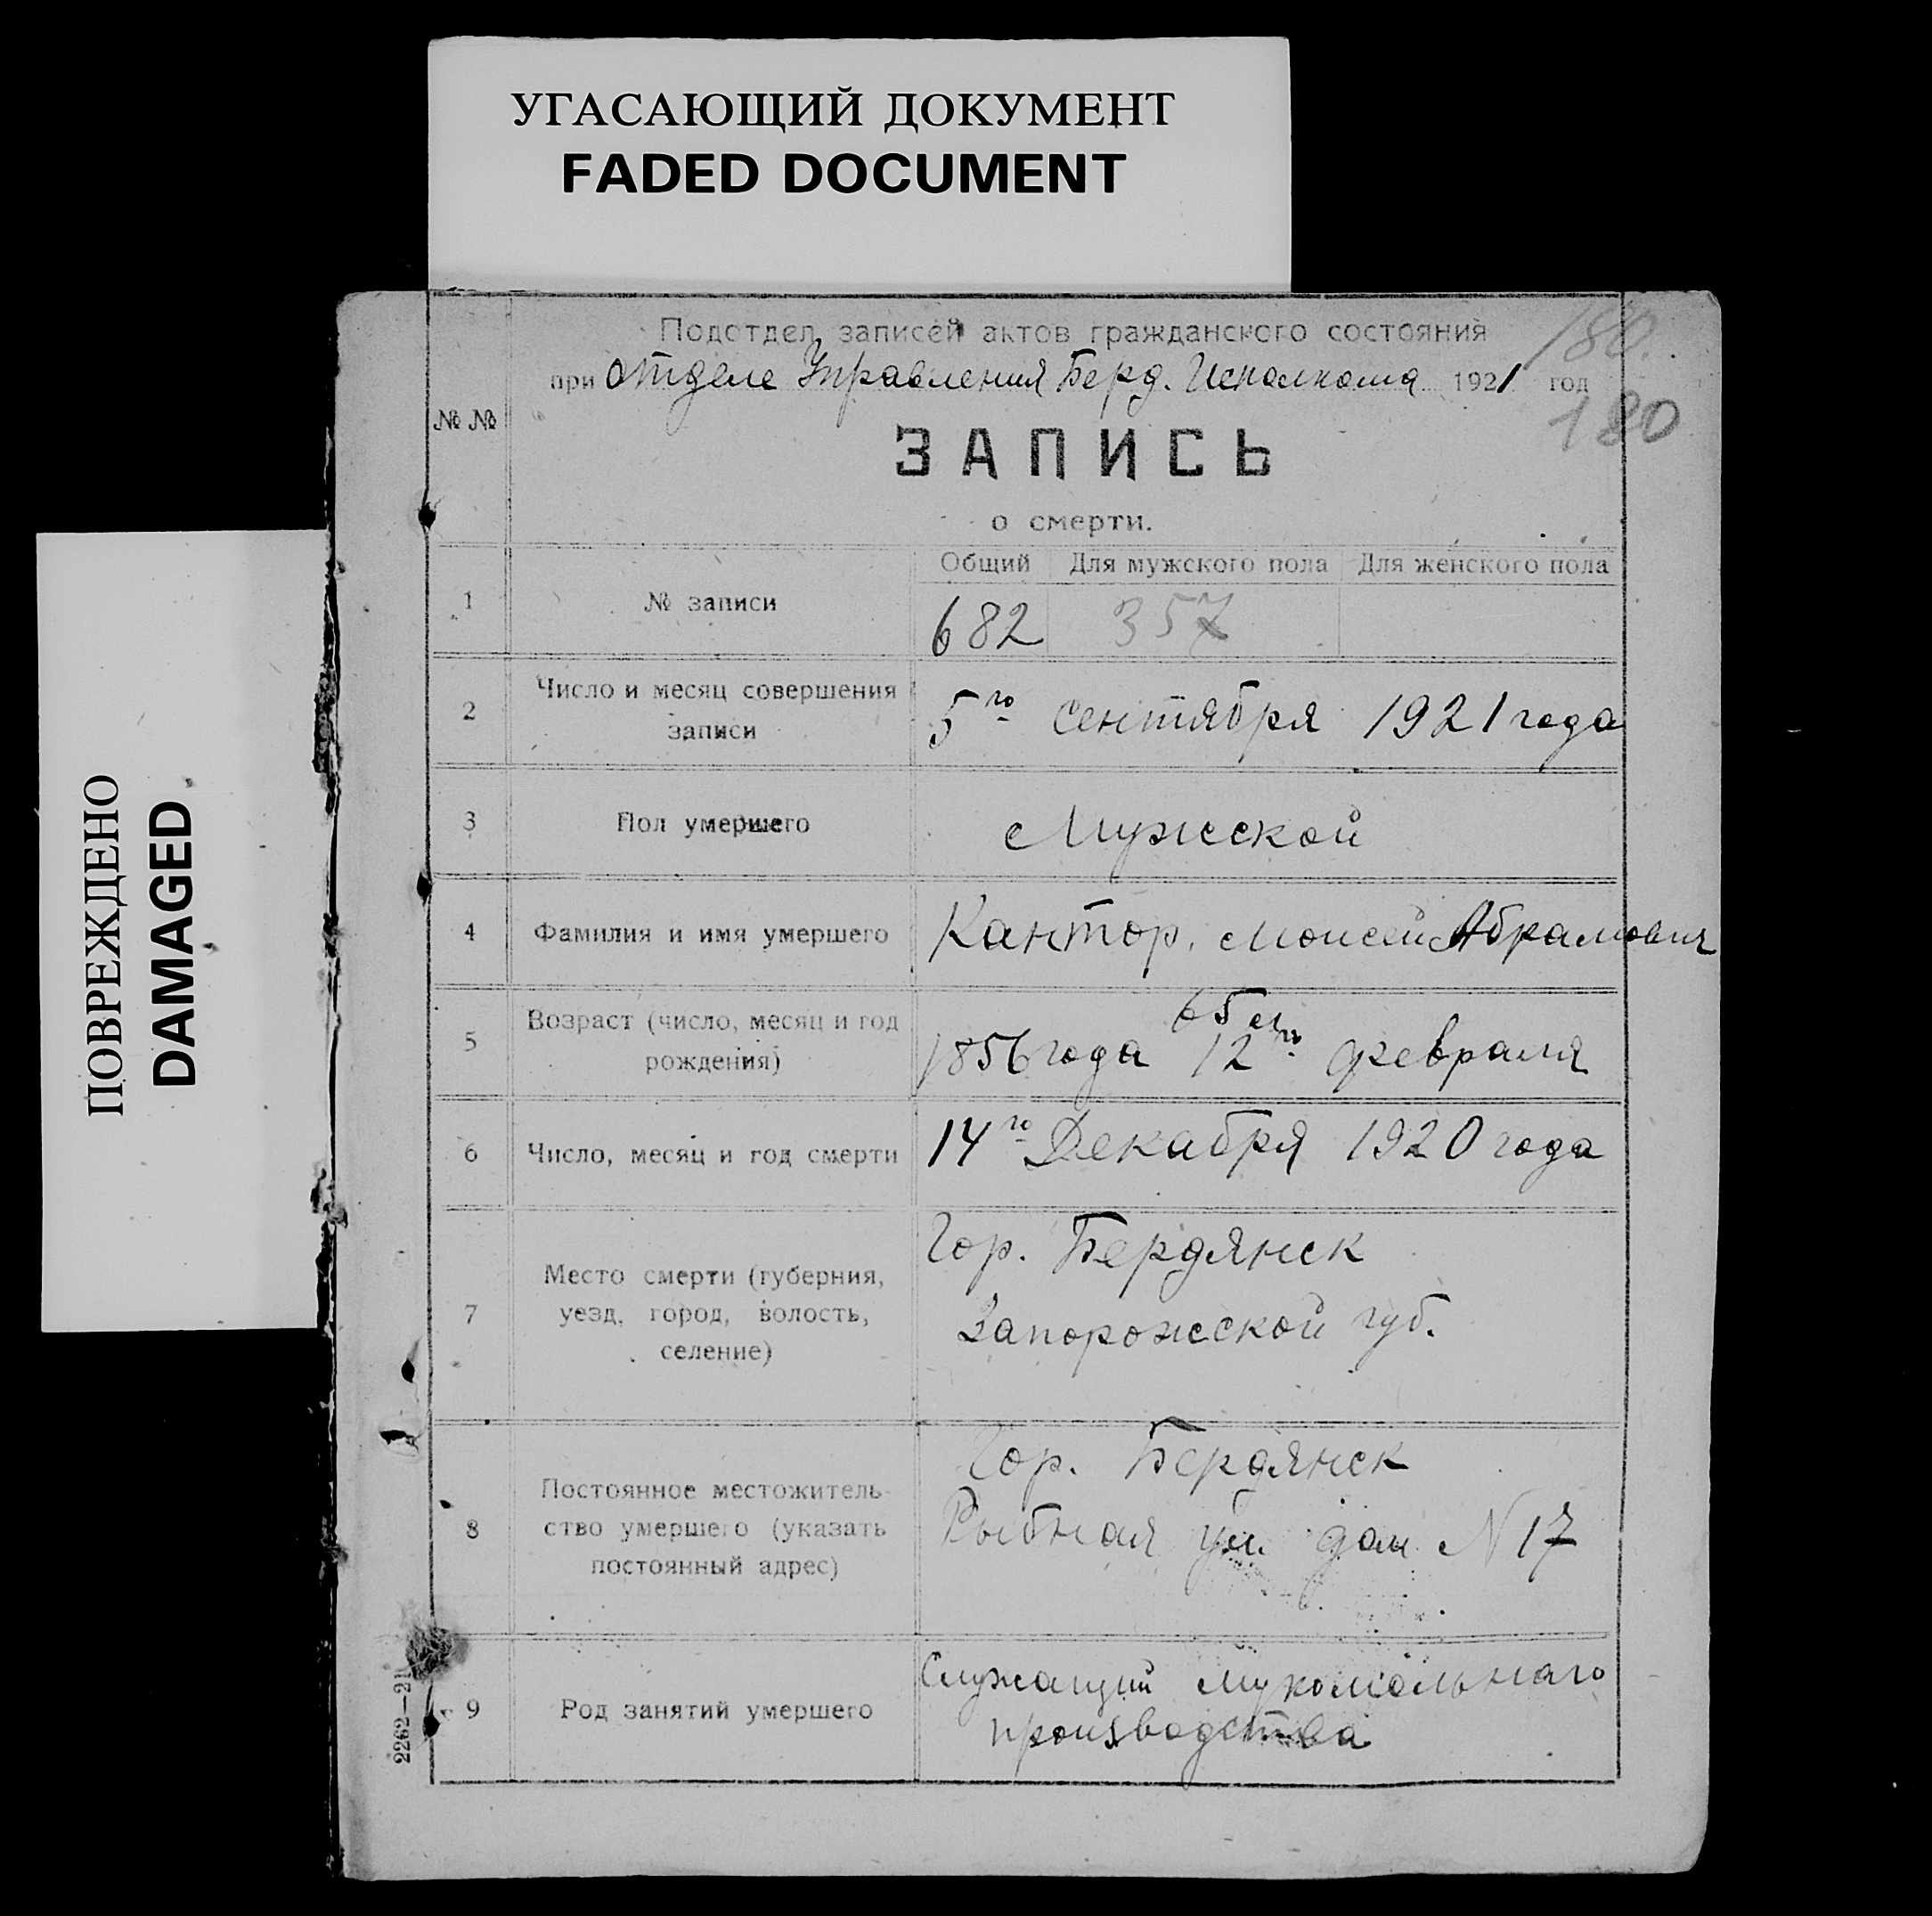 УГАСАЮЩИЙ ДОКУМЕНТ
FADED DOCUMENT
ПОВРЕЖДЕНО
DAMAGED
Подотдел записей актов гражданского состояния
180.
при отделе Управления Берд. Исполкома 1921 год
180
№ №
ЗАПИСЬ
о смерти.
Общий Для мужского пола Для женского пола
1 № записи 682 357
2 Число и месяц совершения
записи
5го сентября 1921 года
3 Пол умершего Мужской
4 Фамилия и имя умершего Кантор, Моисей Абрамович
5 Возраст (число, месяц и год
рождения)
65 л.
1856 года 12го февраля
6 Число, месяц и год смерти 14го Декабря 1920 года
7 Место смерти (губерния,
уезд, город, волость,
селение)
Гор. Бердянск
Запорожской губ.
8 Постоянное местожитель-
ство умершего (указать
постоянный адрес)
Гор. Бердянск
Рыбная ул. дом N 17
9 Род занятий умершего
Служащий мукомольнаго
производства
2262—21